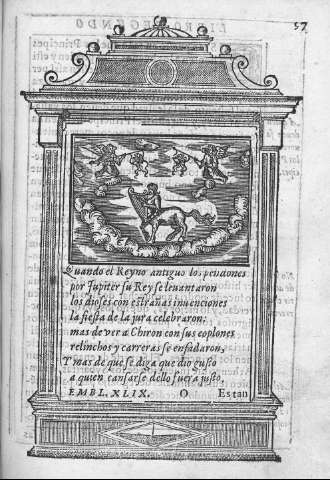 57
Quando el Reyno antiguo los pendones
por Jupiter ſu Rey ſe leuantaron
los dioſes con eſtrañas inuenciones
la fieſta de la jura celebraron:
mas de ver a Chiron con sus coplones
relinchos y carreras se enfadaron,
Y mas de que ſe diga que dio guſto
a quien canſarſe dello fuera juſto.
EMBL. XLIX. O Eſtan